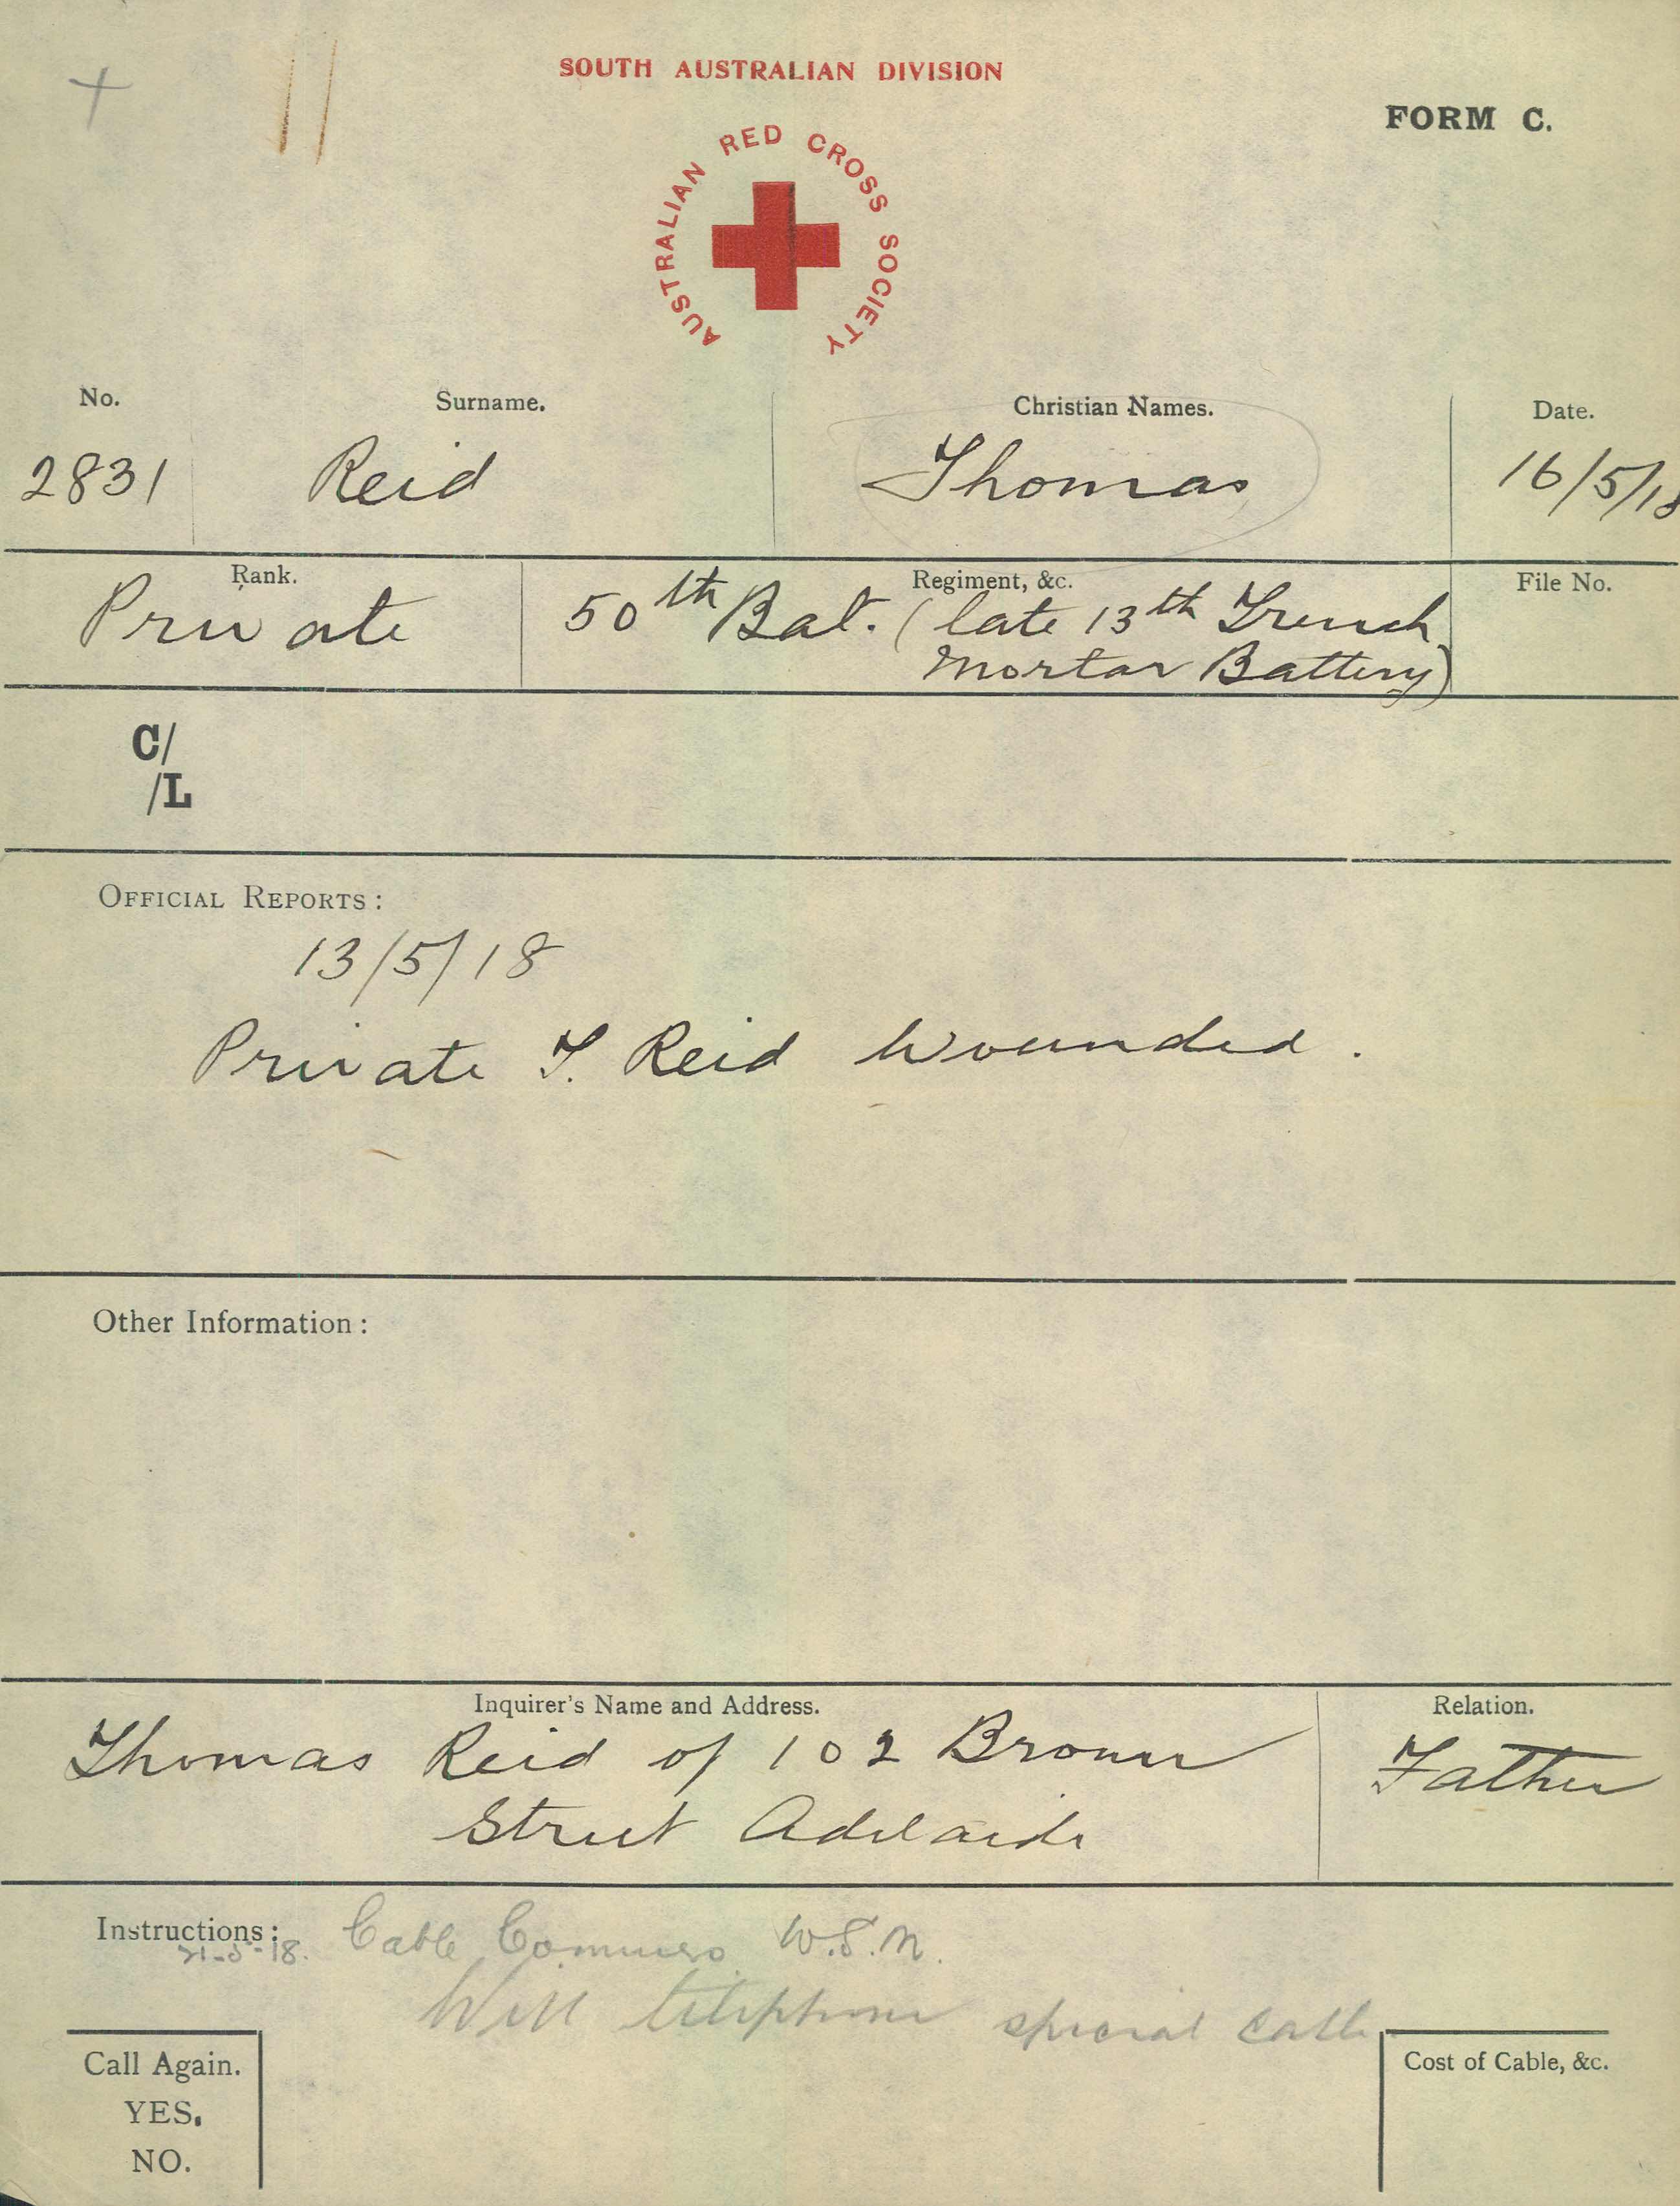 SOUTH AUSTRALIAN DIVISION
FORM C.
AUSTRALIAN RED CROSS SOCIETY
No. Surname. Christian Names. Date.
2831 Reid Thomas 16/5/18
Rank. Regiment, &c. File No.
Private 50th Bat. (late 13th Trench
Mortar Battery)
C/
/L
OFFICIAL REPORTS:
13/5/18
Private T. Reid Wounded.
Other Information:
Inquirer's Name and Address. Relation.
Thomas Reid of 102 Brown Father
Street Adelaide
Instructions: Cable Commrs W.S.N.
21-5-18.
Will telephone special cable
Call Again. Cost of Cable, &c.
YES.
NO.